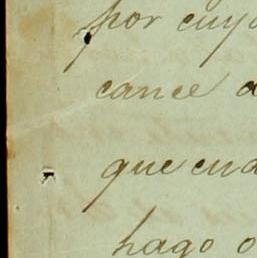 por cuyo
cance a
que cua
hago o